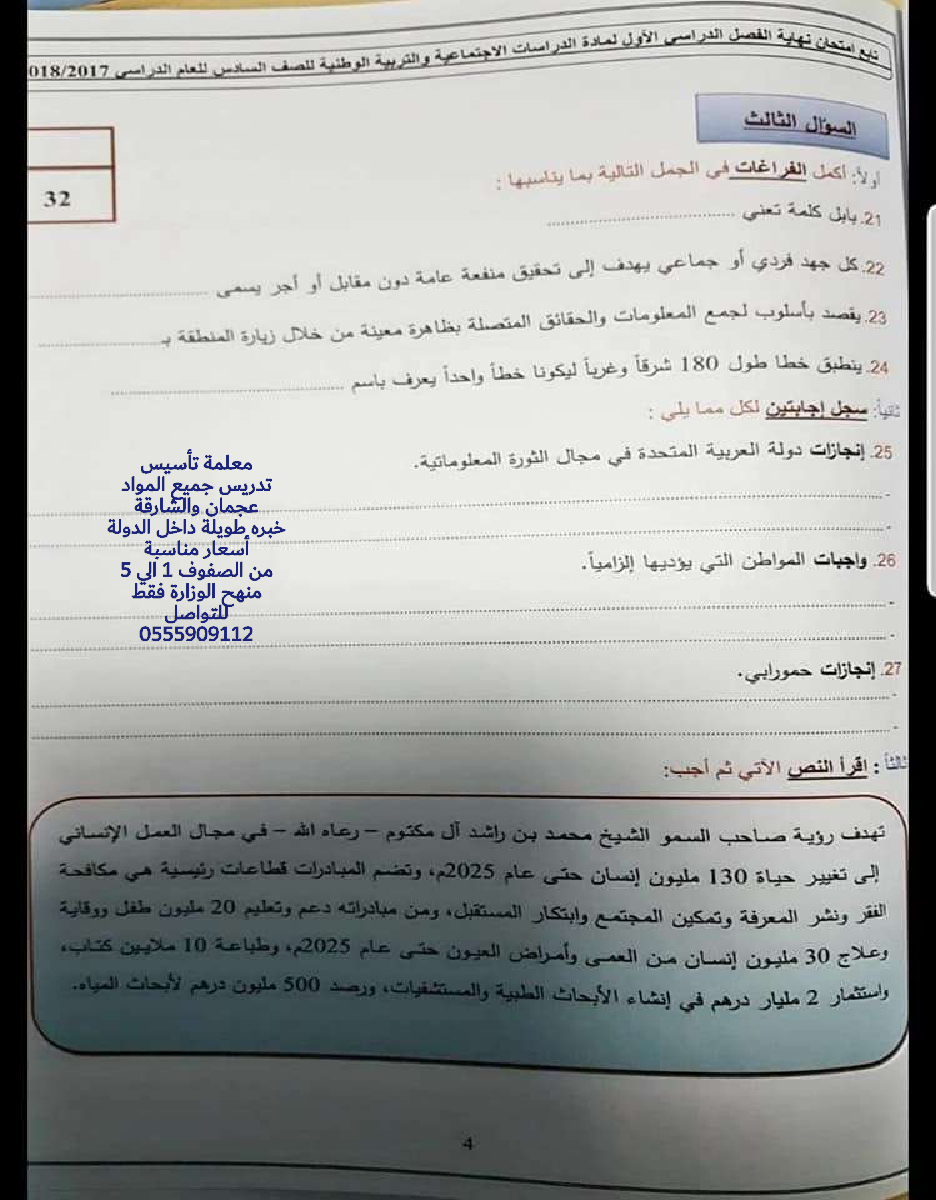 تابع امتحان نهاية الفصل الدراسي الأول لمادة الدراسات الاجتماعية والتربية الوطنية للصف السادس للعام الدراسي 018/2017
السؤال الثالث
32
أولاً: أكمل الفراغات في الجمل التالية بما يناسبها :
21. بابل كلمة تعني ........................
22. كل جهد فردي أو جماعي يهدف إلى تحقيق منفعة عامة دون مقابل أو أجر يسمى ........................
23. يقصد بأسلوب لجمع المعلومات والحقائق المتصلة بظاهرة معينة من خلال زيارة المنطقة بـ........................
24. ينطبق خطا طول 180 شرقاً وغرباً ليكونا خطاً واحداً يعرف باسم ........................
ثانياً: سجل إجابتين لكل مما يلي :
25. إنجازات دولة العربية المتحدة في مجال الثورة المعلوماتية.
- ........................
- ........................
26. واجبات المواطن التي يؤديها إلزامياً.
- ........................
- ........................
27. إنجازات حمورابي.
- ........................
- ........................
معلمة تأسيس
تدريس جميع المواد
عجمان والشارقة
خبره طويلة داخل الدولة
أسعار مناسبة
من الصفوف 1 الي 5
منهج الوزارة فقط
للتواصل
0555909112
ثالثاً : اقرأ النص الآتي ثم أجب:
تهدف رؤية صاحب السمو الشيخ محمد بن راشد آل مكتوم – رعاه الله – في مجال العمل الإنساني
إلى تغيير حياة 130 مليون إنسان حتى عام 2025م، وتضم المبادرات قطاعات رئيسية هي مكافحة
الفقر ونشر المعرفة وتمكين المجتمع وابتكار المستقبل، ومن مبادراته دعم وتعليم 20 مليون طفل ووقاية
وعلاج 30 مليون إنسان من العمى وأمراض العيون حتى عام 2025م، وطباعة 10 ملايين كتاب،
واستثمار 2 مليار درهم في إنشاء الأبحاث الطبية والمستشفيات، ورصد 500 مليون درهم لأبحاث المياه.
4